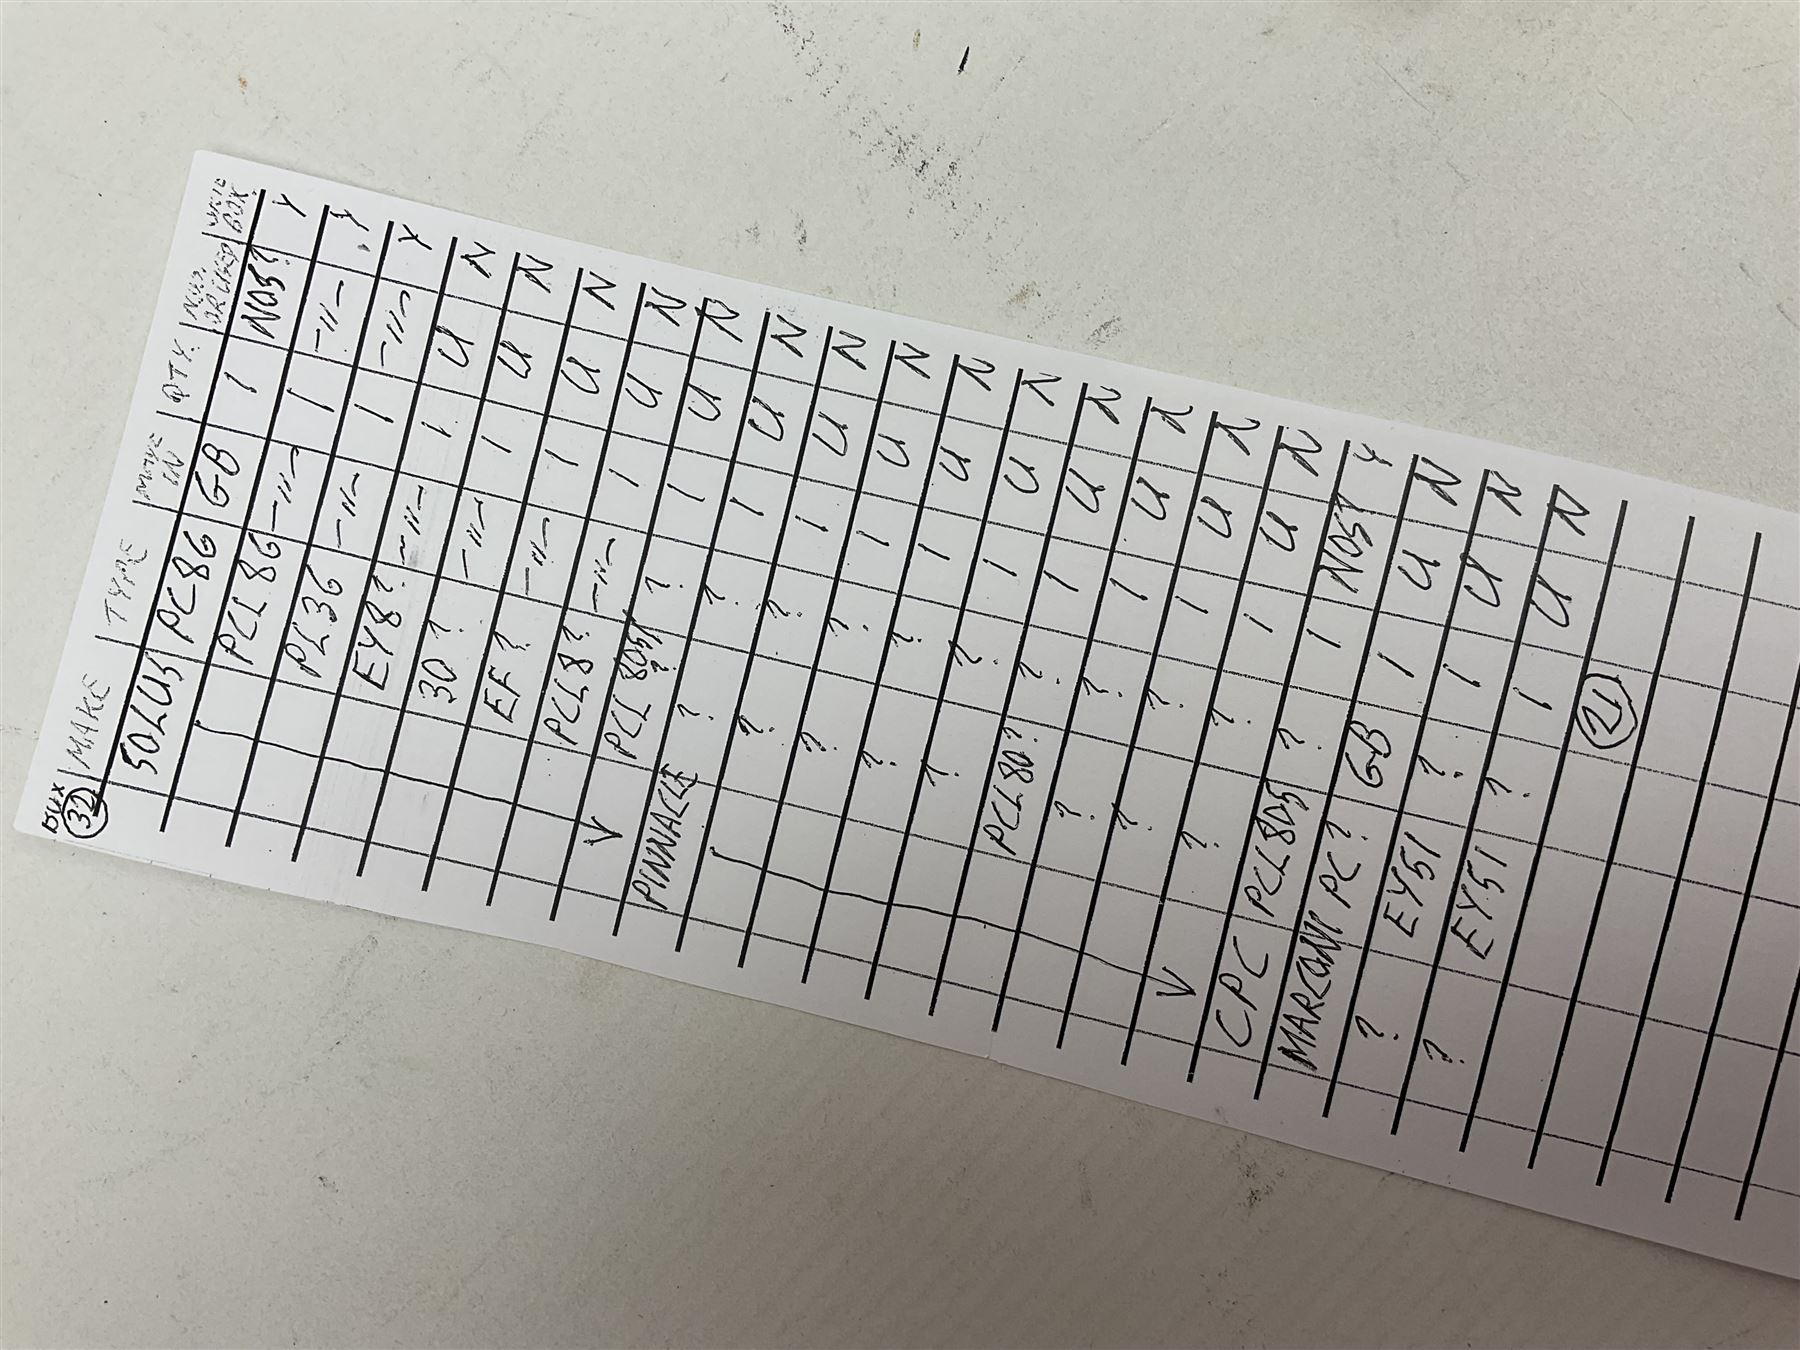 BOX 32 MAKE TYPE MADE IN QTY. NOS. OR USED WITH BOX?
SOLUS PC86 GB 1 NOS? Y
PCL86 -"- 1 -"- Y
PL36 -"- 1 -"- Y
EY8? -"- 1 U N
30? -"- 1 U N
EF? -"- 1 U N
PCL8? -"- 1 U N
PCL805? ? 1 U N
PINNACLE ? ? 1 U N
? ? 1 U N
? ? 1 U N
? ? 1 U N
? ? 1 U N
PCL80? ? 1 U N
? ? 1 U N
? ? 1 U N
? ? 1 U N
CPC PCL805 ? 1 NOS? Y
MARCONI PC? GB 1 U N
? EY51 ? 1 U N
? EY51 ? 1 U N
21